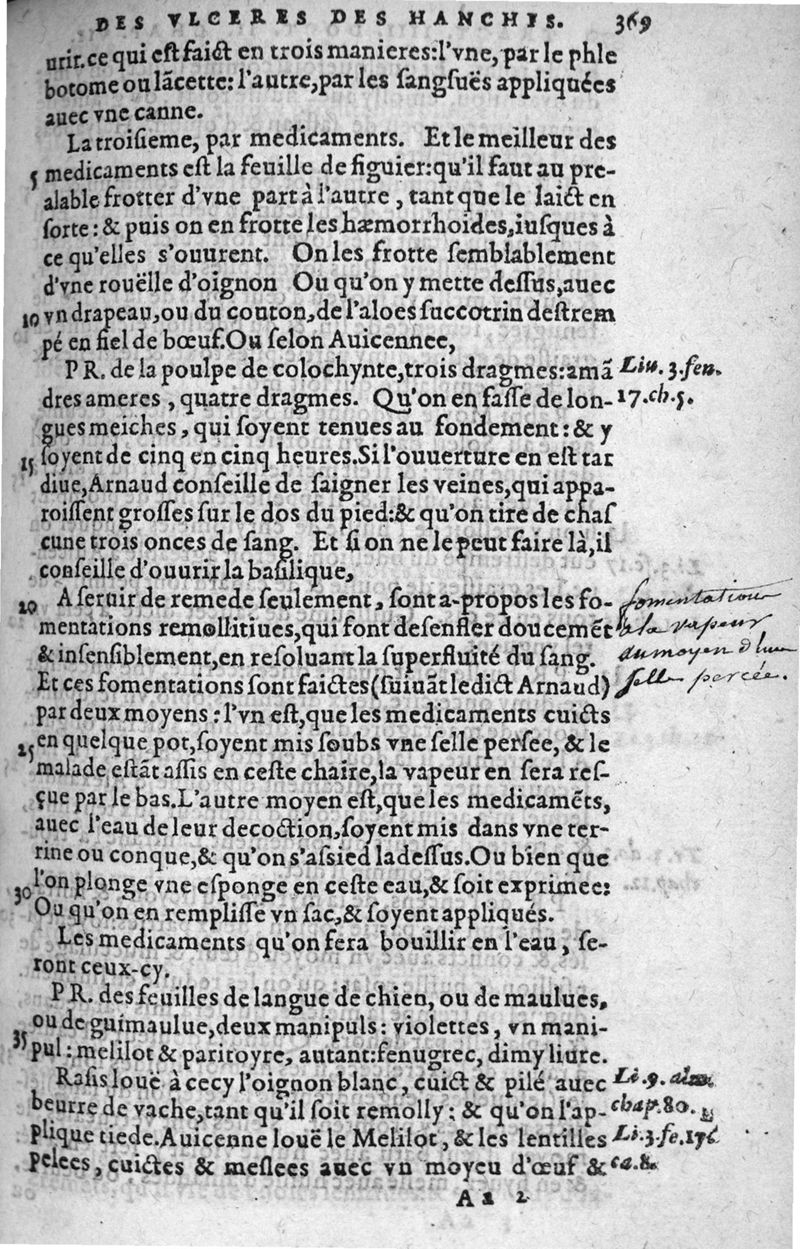 DES VLCERES DES HANCHES. 369
urir.ce qui eſt faict en trois manieres:l'vne,par le phle
botome ou lãcette: l'autre,par les ſangſuës appliquées
auec vne canne.
La troiſieme, par medicaments. Et le meilleur des
5 medicaments eſt la feuille de figuier:qu'il faut au pre-
alable frotter d'vne part à l'autre, tant que le laict en
ſorte: & puis on en frotte les hæmorrhoides,iuſques à
ce qu'elles s'ouurent. On les frotte ſemblablement
d'vne rouëlle d'oignon Ou qu'on y mette deſſus,auec
10 vn drapeau,ou du couton,de l'aloes ſuccotrin deſtrem
pé en fiel de bœuf.Ou ſelon Auicennee,
PR. de la poulpe de colochynte,trois dragmes:amã Liu. 3.fen.
dres ameres, quatre dragmes. Qu'on en faſſe de lon- 17.ch.5.
gues meiches, qui ſoyent tenues au fondement: & y
15 ſoyent de cinq en cinq heures.Si l'ouuerture en eſt tar
diue,Arnaud conſeille de ſaigner les veines,qui appa-
roiſſent groſſes ſur le dos du pied:& qu'on tire de chaſ
cune trois onces de ſang. Et ſi on ne le peut faire là,il
conſeille d'ouurir la baſilique,
20 A ſeruir de remede ſeulement, ſont a-propos les fo- fomentations
mentations remollitiues,qui font deſenfler doucemẽt a la vapeur
& inſenſiblement,en reſoluant la ſuperfluité du ſang. du moyen d'une
Et ces fomentations ſont faictes(ſuiuãt ledict Arnaud) ſelle percée.
par deux moyens: l'vn eſt,que les medicaments cuicts
25 en quelque pot,ſoyent mis ſoubs vne ſelle perſee, & le
malade eſtãt aſſis en ceſte chaire,la vapeur en ſera reſ-
çue par le bas.L'autre moyen eſt,que les medicamẽts,
auec l'eau de leur decoction,ſoyent mis dans vne ter-
rine ou conque,& qu'on s'aſsied ladeſſus.Ou bien que
30 l'on plonge vne eſponge en ceſte eau,& ſoit exprimee:
Ou qu'on en rempliſſe vn ſac,& ſoyent appliqués.
Les medicaments qu'on fera bouillir en l'eau, ſe-
ront ceux-cy.
PR. des feuilles de langue de chien, ou de maulues,
ou de guimaulue,deux manipuls: violettes, vn mani-
35 pul: melilot & paritoyre, autant:fenugrec, dimy liure.
Raſis louë à cecy l'oignon blanc, cuict & pilé auec Li. 9.
beurre de vache,tant qu'il ſoit remolly: & qu'on l'ap- chap.80.
plique tiede.Auicenne louë le Melilot, & les lentilles Li.3.fe.17.
pelees, cuictes & meſlees auec vn moyeu d'œuf & ca.8.
Aa 2